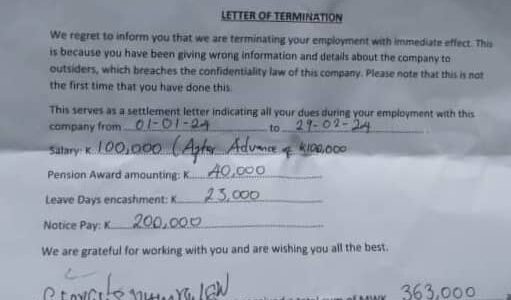 LETTER OF TERMINATION
We regret to inform you that we are terminating your employment with immediate effect. This
is because you have been giving wrong information and details about the company to
outsiders, which breaches the confidentiality law of this company. Please note that this is not
the first time that you have done this.
This serves as a settlement letter indicating all your dues during your employment with this
company from 01-01-24 to 29-02-24
Salary: K 100,000 (After Advance of K100,000
Pension Award amounting: K 40,000
Leave Days encashment: K 23,000
Notice Pay: K 200,000
We are grateful for working with you and are wishing you all the best.
sum of MWK 363,000